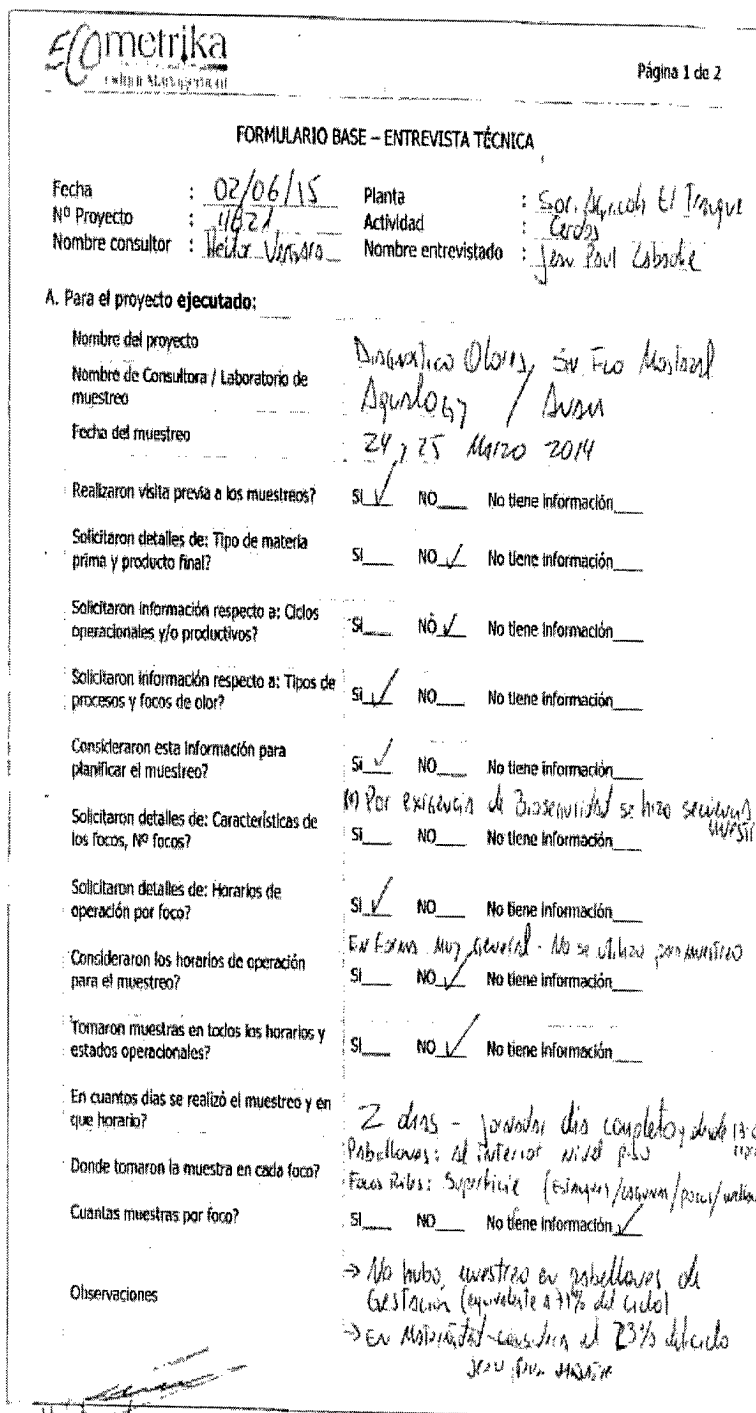 ECOmetrika
Odour Management
Página 1 de 2
FORMULARIO BASE – ENTREVISTA TÉCNICA
Fecha : 02/06/15 Planta : Soc. Agricola El Tranque
Nº Proyecto : Actividad : Cerdos
Nombre consultor : Hector Vergara Nombre entrevistado : Jean Paul
A. Para el proyecto ejecutado:
Nombre del proyecto Diagnostico Olores, Sn Fco Mostazal
Nombre de Consultora / Laboratorio de muestreo Aqualogy /
Fecha del muestreo 24 y 25 Marzo 2014
Realizaron visita previa a los muestreos? SI ✓ NO___ No tiene información___
Solicitaron detalles de: Tipo de materia
prima y producto final? SI___ NO ✓ No tiene información___
Solicitaron información respecto a: Ciclos
operacionales y/o productivos? SI___ NO ✓ No tiene información___
Solicitaron información respecto a: Tipos de
procesos y focos de olor? SI ✓ NO___ No tiene información___
Consideraron esta información para
planificar el muestreo? SI ✓ NO___ No tiene información___
Por exigencia de Bioseguridad se hizo
Solicitaron detalles de: Características de
los focos, Nº focos? SI___ NO___ No tiene información___
Solicitaron detalles de: Horarios de
operación por foco? SI ✓ NO___ No tiene información___
En forma muy general - No se utilizo para muestreo
Consideraron los horarios de operación
para el muestreo? SI___ NO ✓ No tiene información___
Tomaron muestras en todos los horarios y
estados operacionales? SI___ NO ✓ No tiene información___
En cuantos días se realizó el muestreo y en
que horario? 2 dias - jornada dia completo y desde
Donde tomaron la muestra en cada foco? Pabellones: al interior nivel piso
Focos Riles: Superficie (estanques/lagunas/pozos/
Cuantas muestras por foco? SI___ NO___ No tiene información ✓
Observaciones
→ No hubo, muestreo en pabellones de
Gestación (equivalente a 71% del ciclo)
→ En Maternidad considera el 23% del ciclo